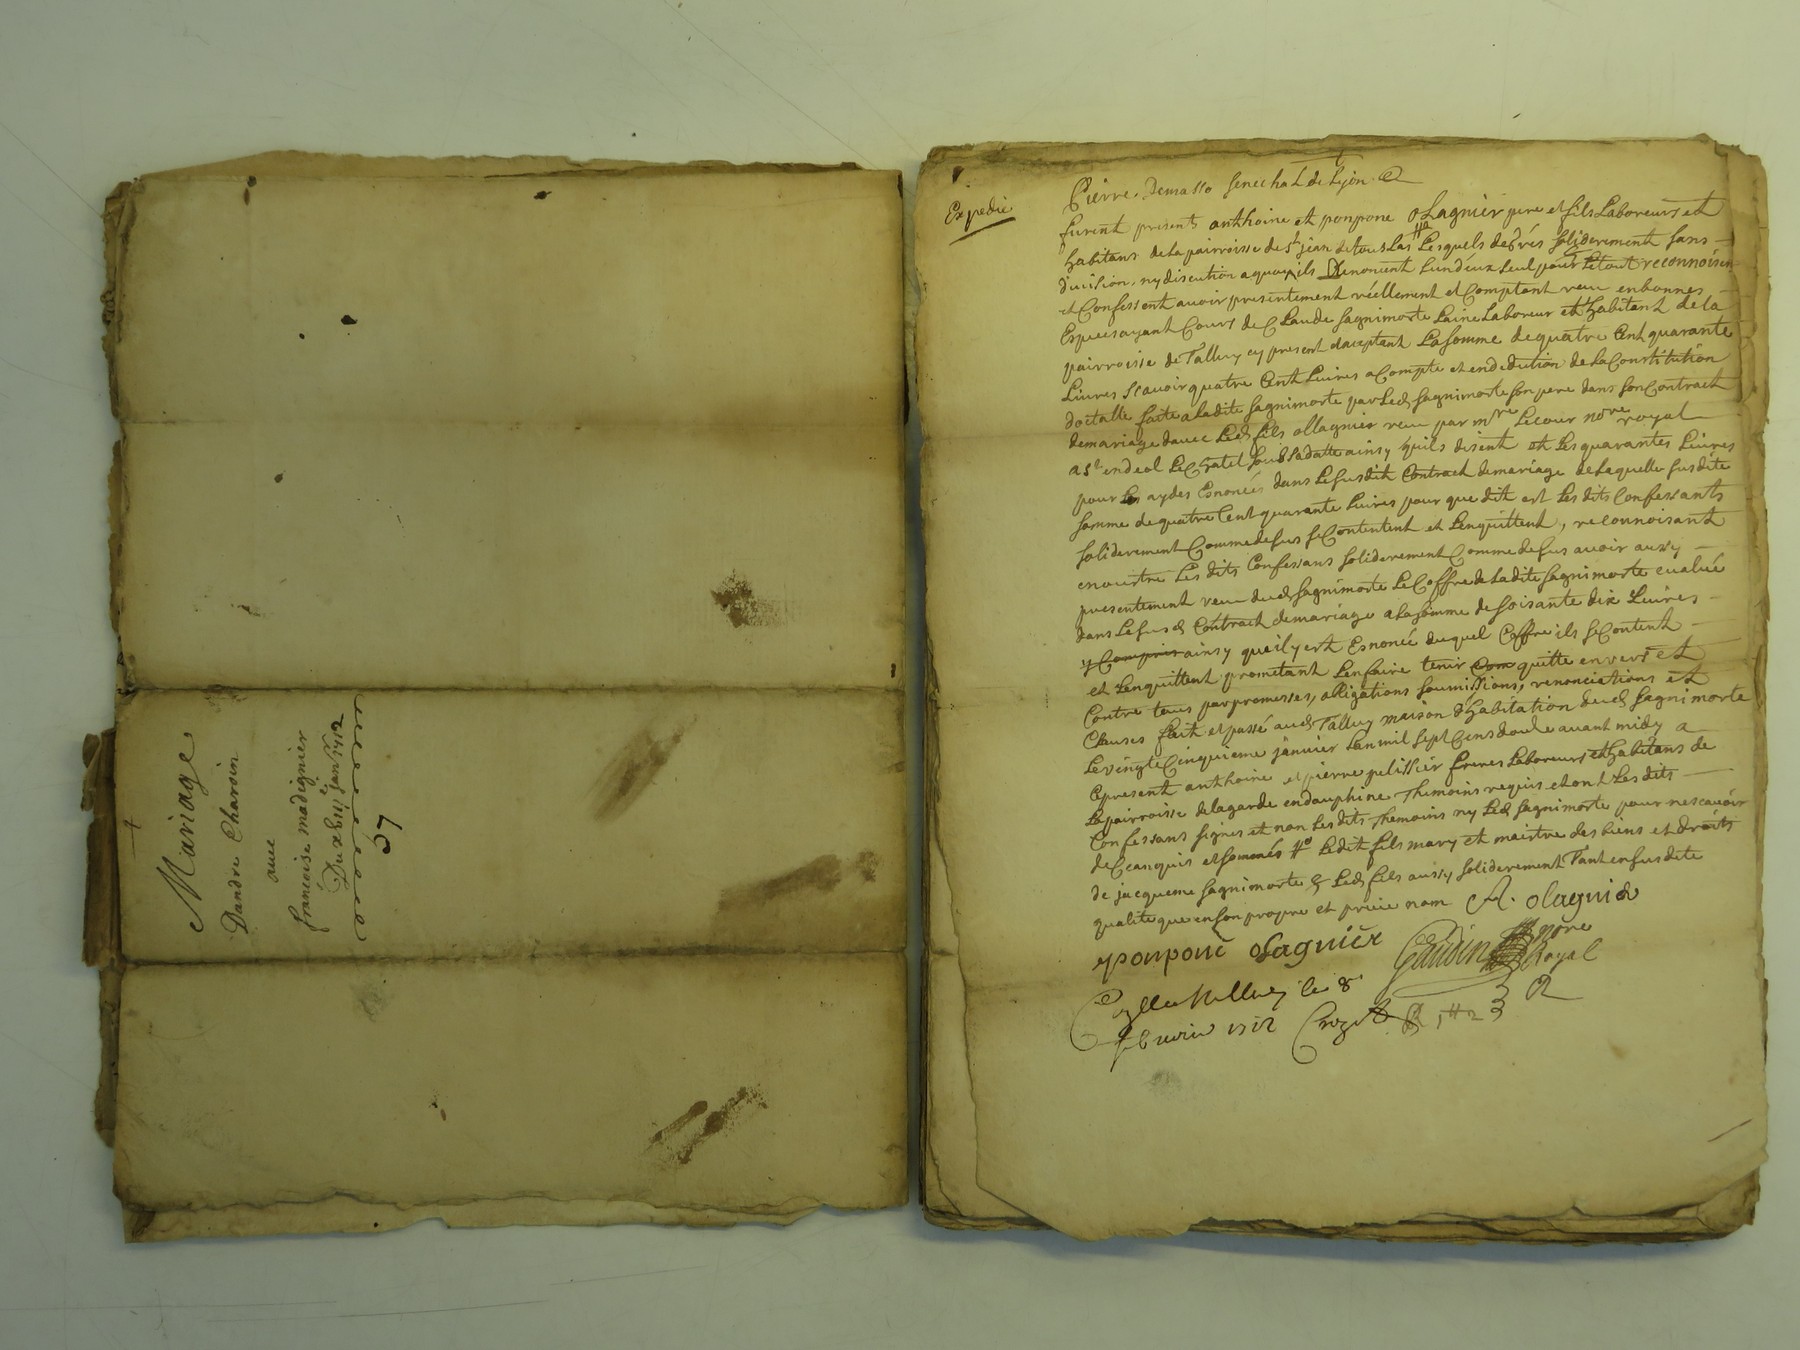 Mariage
Dandre Charvin
avec
francoise madignier
Du janr 1712
37
Expedié
Pierre Demasso senechal de Lyon
furent presents anthoine et ponpone olagnier pere et fils Laboreurs et
habitans de la pairroisse de st jean de tous Las Lesquels de grés soliderement sans
division, ny discution a quoy ils Renoncent Lun deux seul pour Le tout reconnoisent
et Confessent avoir presentement réellement et Comptant receu en bonnes
Especes ayant Cours de Claude fagnimorte Laine Laboreur et habitant de la
pairroisse de Talluy cy present et aceptant La somme de quatre Cent quarante
Livres scavoir quatre Cent Livres a Compte et en deduction de la Constitution
doctalle faite a Ladite fagnimorte par Led fagnimorte son pere dans son Contract
de mariage davec Led fils ollagnier receu par mre Lecour nore royal
a st endeol Le Chatel sous sa datte ainsy quils disent et Les quarantes Livres
pour Les aydes Enoncés dans Le susdit Contract de mariage de Laquelle susdite
somme de quatre Cent quarante Livres pour que dit est Les dits Confessants
soliderement Comme desus se Contentent et Lenquittent, reconnoisant
en outre Les dits Confessans soliderement Comme desus avoir aussy
presentement receu dud fagnimorte Le Coffre de Ladite fagnimorte evalué
dans Le sus d Contract de mariage a La somme de soisante dix Livres
y Compris ainsy que il y est Esnoncé duquel Coffre ils se Content
et Lenquittent prometant Len faire tenir quitte envers et
Contre tous par promesses, obligations soumissions, renonciations et
Clauses fait et passé aud Talluy maison d'habitation dud fagnimorte
Le vingt Cinquieme janvier Lan mil sept Cens douze avant midy a
Ce present anthoine et pierre pelissier freres Laboreurs et habitans de
La pairroisse de la garde en dauphine Themoins requis et ont Les dits
Confessans signes et non Les dits Themoins ny Led fagnimorte pour ne scavoir
de Ce enquis et sommés Ledit fils mary et maistre des biens et droits
de jacqueme fagnimorte & Led fils aussy soliderement Tant en susdite
qualite que en son propre et privé nom A. olagnier
ponpone olagnier Gaudin nore
Royal
le 8e
febvrier 1712